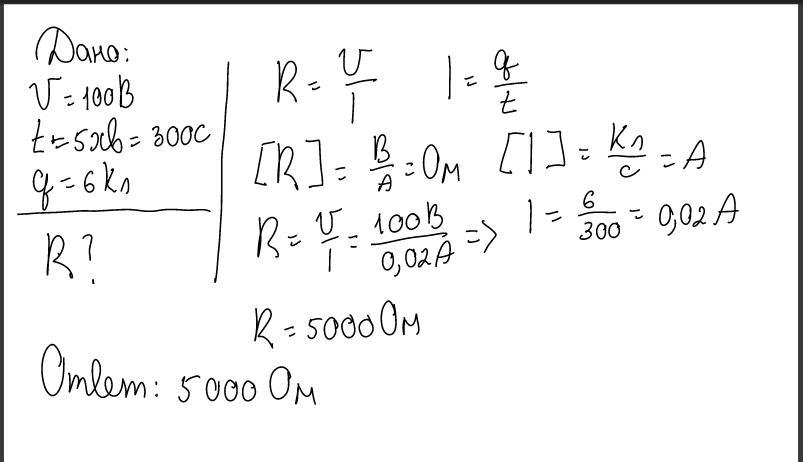 Дано:
U = 100В
t = 5хв = 300с
q = 6 Кл
R?
R = U/I I = q/t
[R] = В/А = Ом [I] = Кл/с = А
R = U/I = 100В/0,02А => I = 6/300 = 0,02 А
R = 5000 Ом
Ответ: 5000 Ом